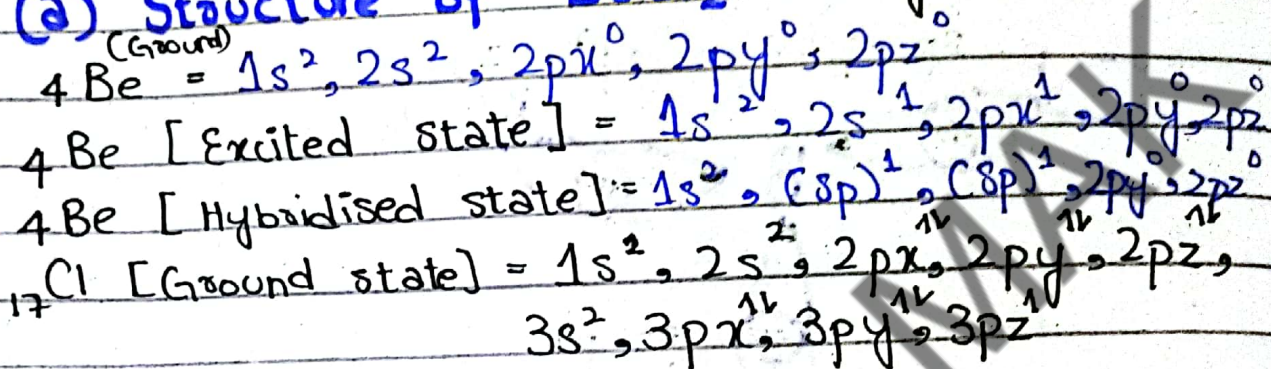 (a) Structure of
(Ground)
₄Be = 1s², 2s², 2px⁰, 2py⁰, 2pz⁰
₄Be [Excited state] = 1s², 2s¹, 2px¹, 2py⁰, 2pz⁰
₄Be [Hybridised state] = 1s², (sp)¹, (sp)¹, 2py⁰, 2pz⁰
₁₇Cl [Ground state] = 1s², 2s², 2px↿⇂, 2py↿⇂, 2pz↿⇂,
3s², 3px↿⇂, 3py↿⇂, 3pz¹
MAK